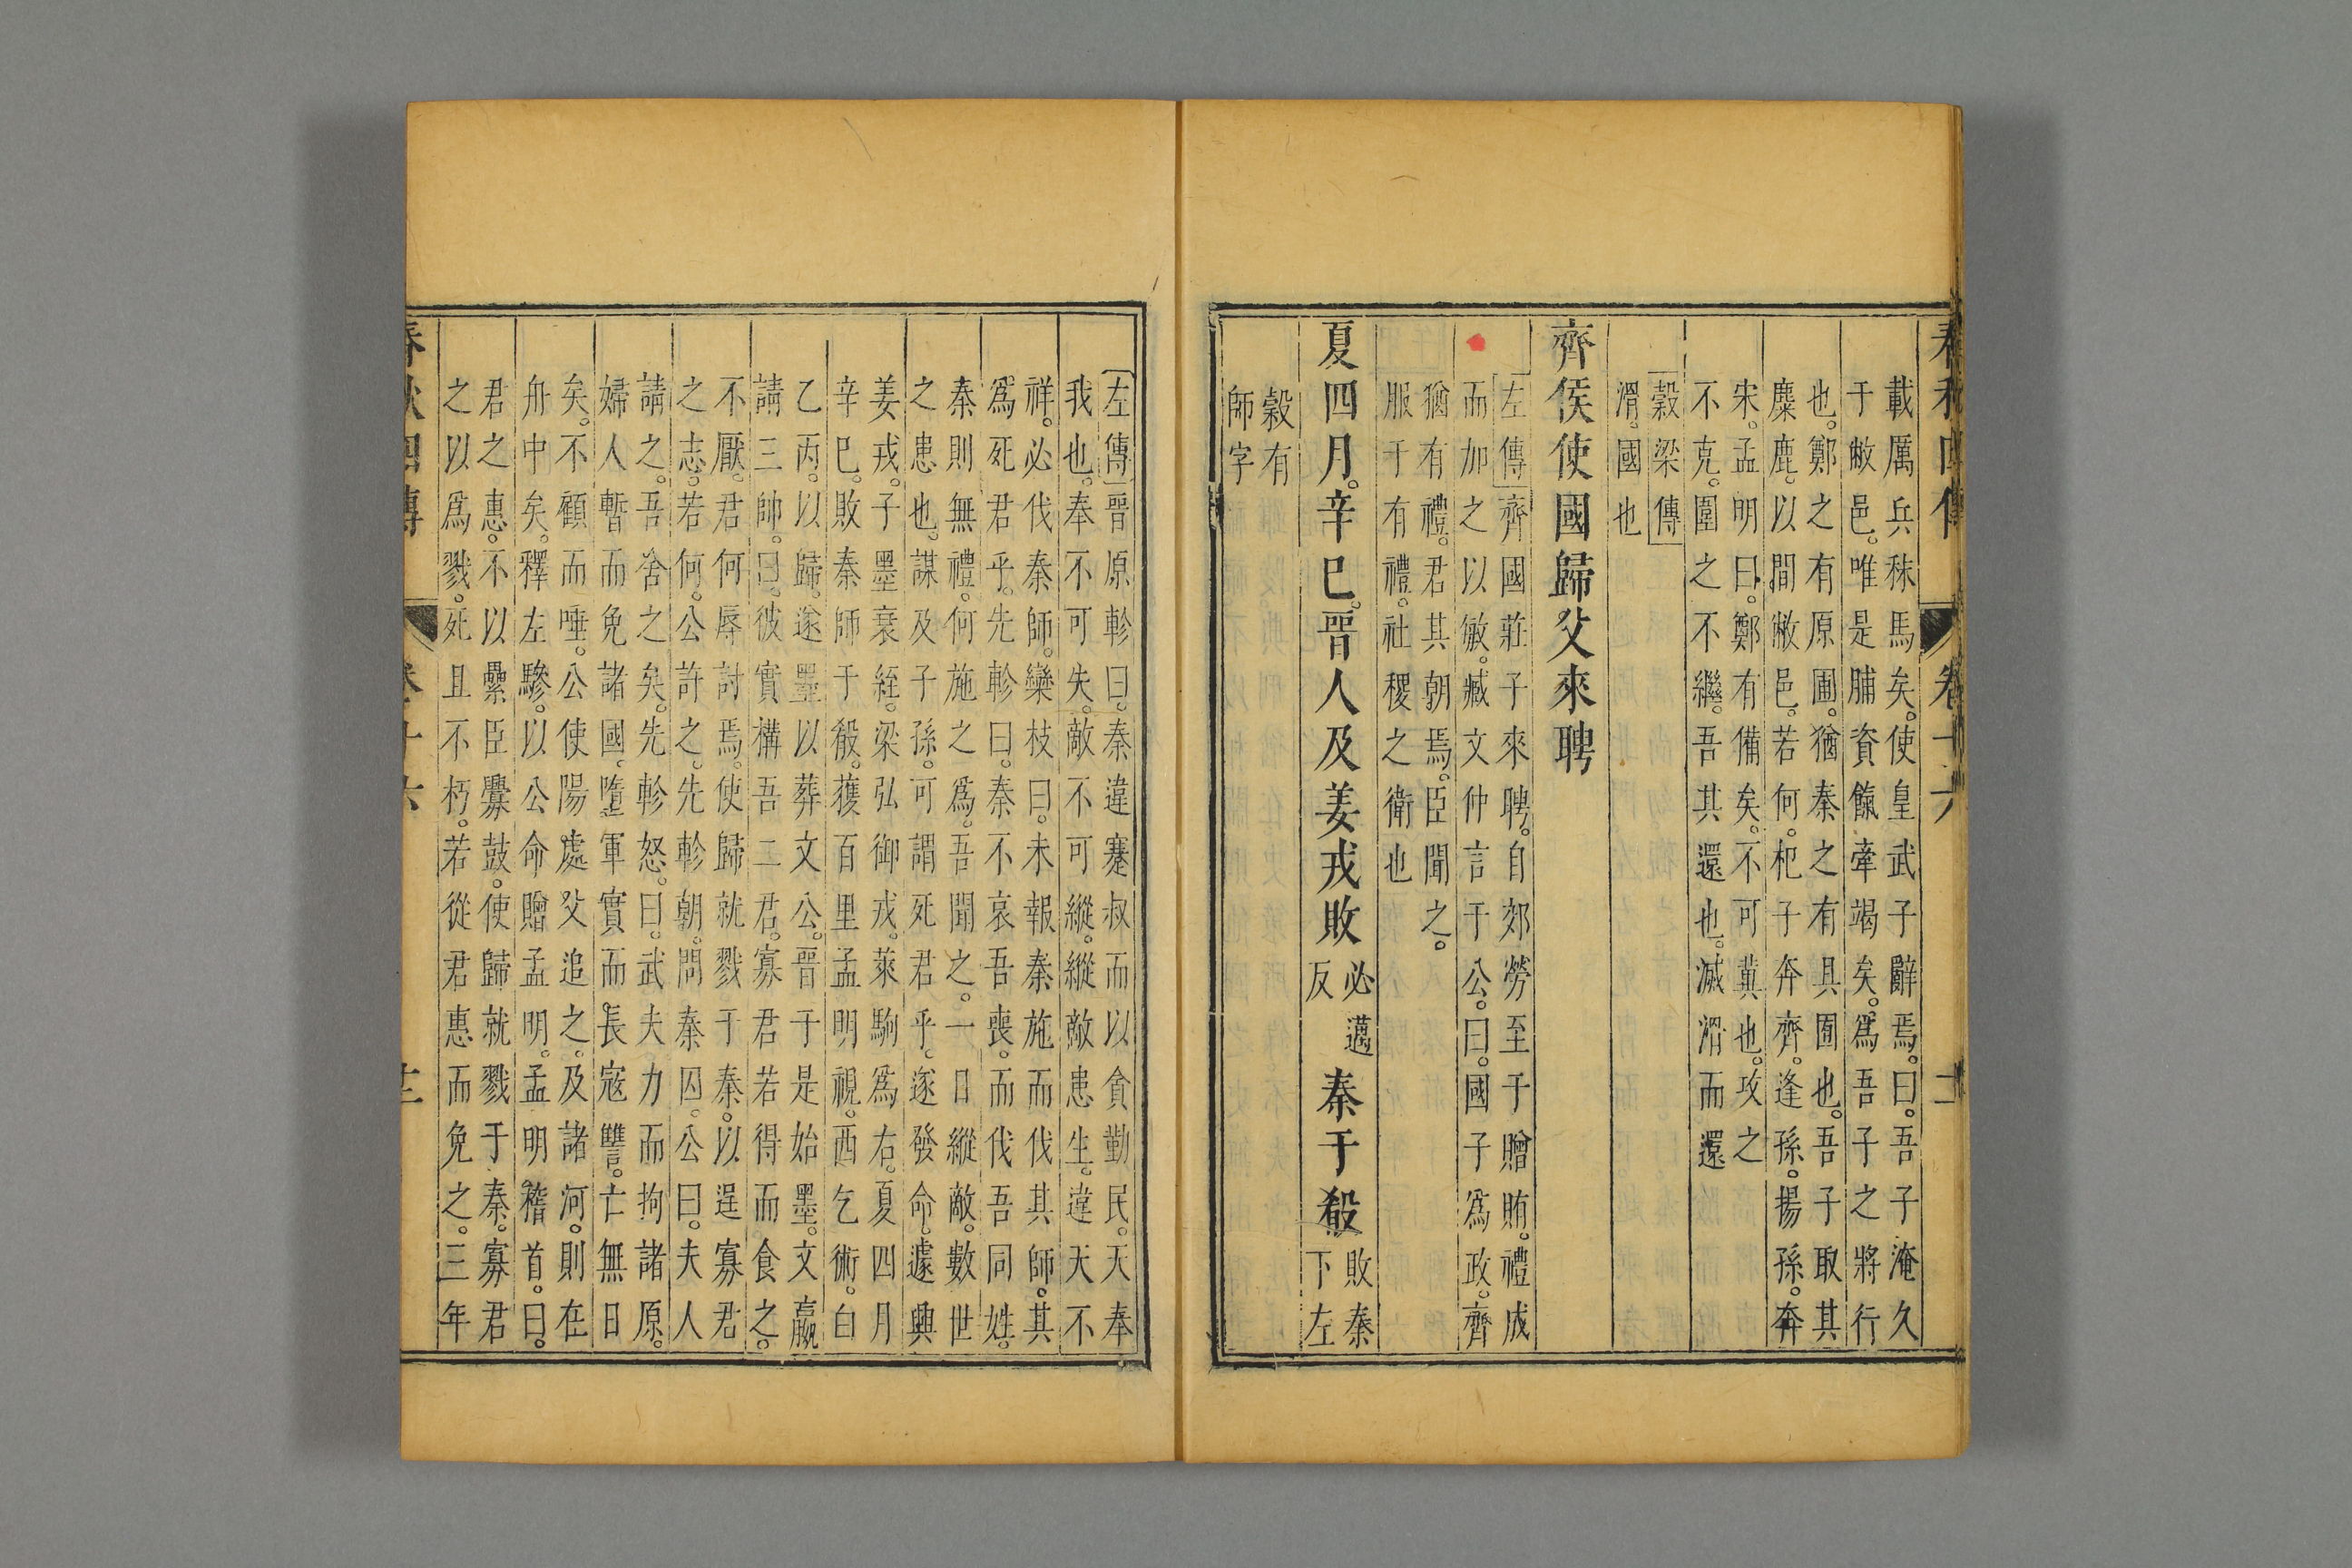 春秋四傳 卷十六
載厲兵秣馬矣。使皇武子辭焉。曰。吾子淹久
于敝邑。唯是脯資餼牽竭矣。爲吾子之將行
也。鄭之有原圃。猶秦之有具囿也。吾子取其
麋鹿。以間敝邑。若何。杞子奔齊。逢孫。揚孫。奔
宋。孟明曰。鄭有備矣。不可冀也。攻之
不克。圍之不繼。吾其還也。滅滑而還
穀梁傳
滑。國也
齊侯使國歸父來聘
左傳齊國莊子來聘。自郊勞至于贈賄。禮成
而加之以敏。臧文仲言于公。曰。國子爲政。齊
猶有禮。君其朝焉。臣聞之。
服于有禮。社稷之衛也
夏四月。辛巳。晉人及姜戎敗必邁反秦于殽敗秦下左
穀有
師字
左傳晉原軫曰。秦違蹇叔而以貪勤民。天奉
我也。奉不可失。敵不可縱。縱敵患生。違天不
祥。必伐秦師。欒枝曰。未報秦施而伐其師。其
爲死君乎。先軫曰。秦不哀吾喪。而伐吾同姓。
秦則無禮。何施之爲。吾聞之。一日縱敵。數世
之患也。謀及子孫。可謂死君乎。遂發命。遽興
姜戎。子墨衰絰。梁弘御戎。萊駒爲右。夏四月
辛巳。敗秦師于殽。獲百里孟明視。西乞術。白
乙丙。以歸。遂墨以葬文公。晉于是始墨。文嬴
請三帥。曰。彼實構吾二君。寡君若得而食之。
不厭。君何辱討焉。使歸就戮于秦。以逞寡君
之志。若何。公許之。先軫朝。問秦囚。公曰。夫人
請之。吾舍之矣。先軫怒。曰。武夫力而拘諸原。
婦人暫而免諸國。墮軍實而長寇讐。亡無日
矣。不顧而唾。公使陽處父追之。及諸河。則在
舟中矣。釋左驂。以公命贈孟明。孟明稽首。曰。
君之惠。不以纍臣釁鼓。使歸就戮于秦。寡君
之以爲戮。死且不朽。若從君惠而免之。三年
春秋四傳 卷十六